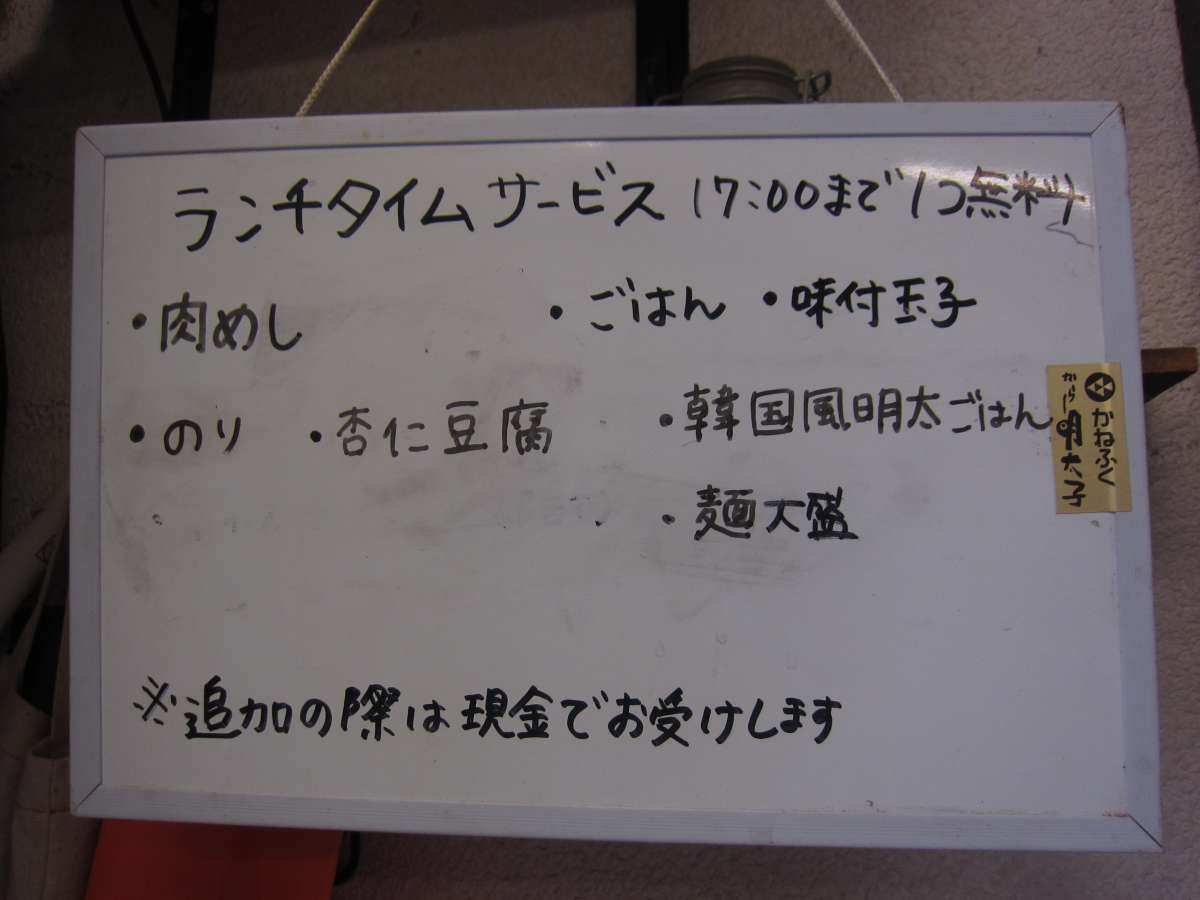 ランチタイムサービス 17:00まで 1つ無料
・肉めし ・ごはん ・味付玉子
・のり ・杏仁豆腐 ・韓国風明太ごはん
・麺大盛
※追加の際は現金でお受けします
かねふく
からし明太子